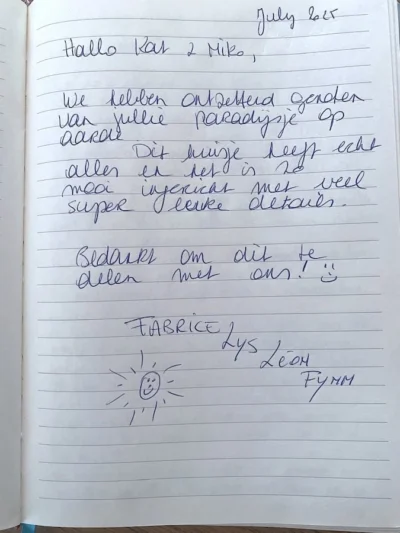 July 2025
Hallo Kat & Niko,
We hebben ontzettend genoten
van jullie paradijsje op
aarde
Dit huisje heeft echt
alles en het is zo
mooi ingericht met veel
super leuke details.
Bedankt om dit te
delen met ons!
FABRICE
Lys
Léon
Fynn